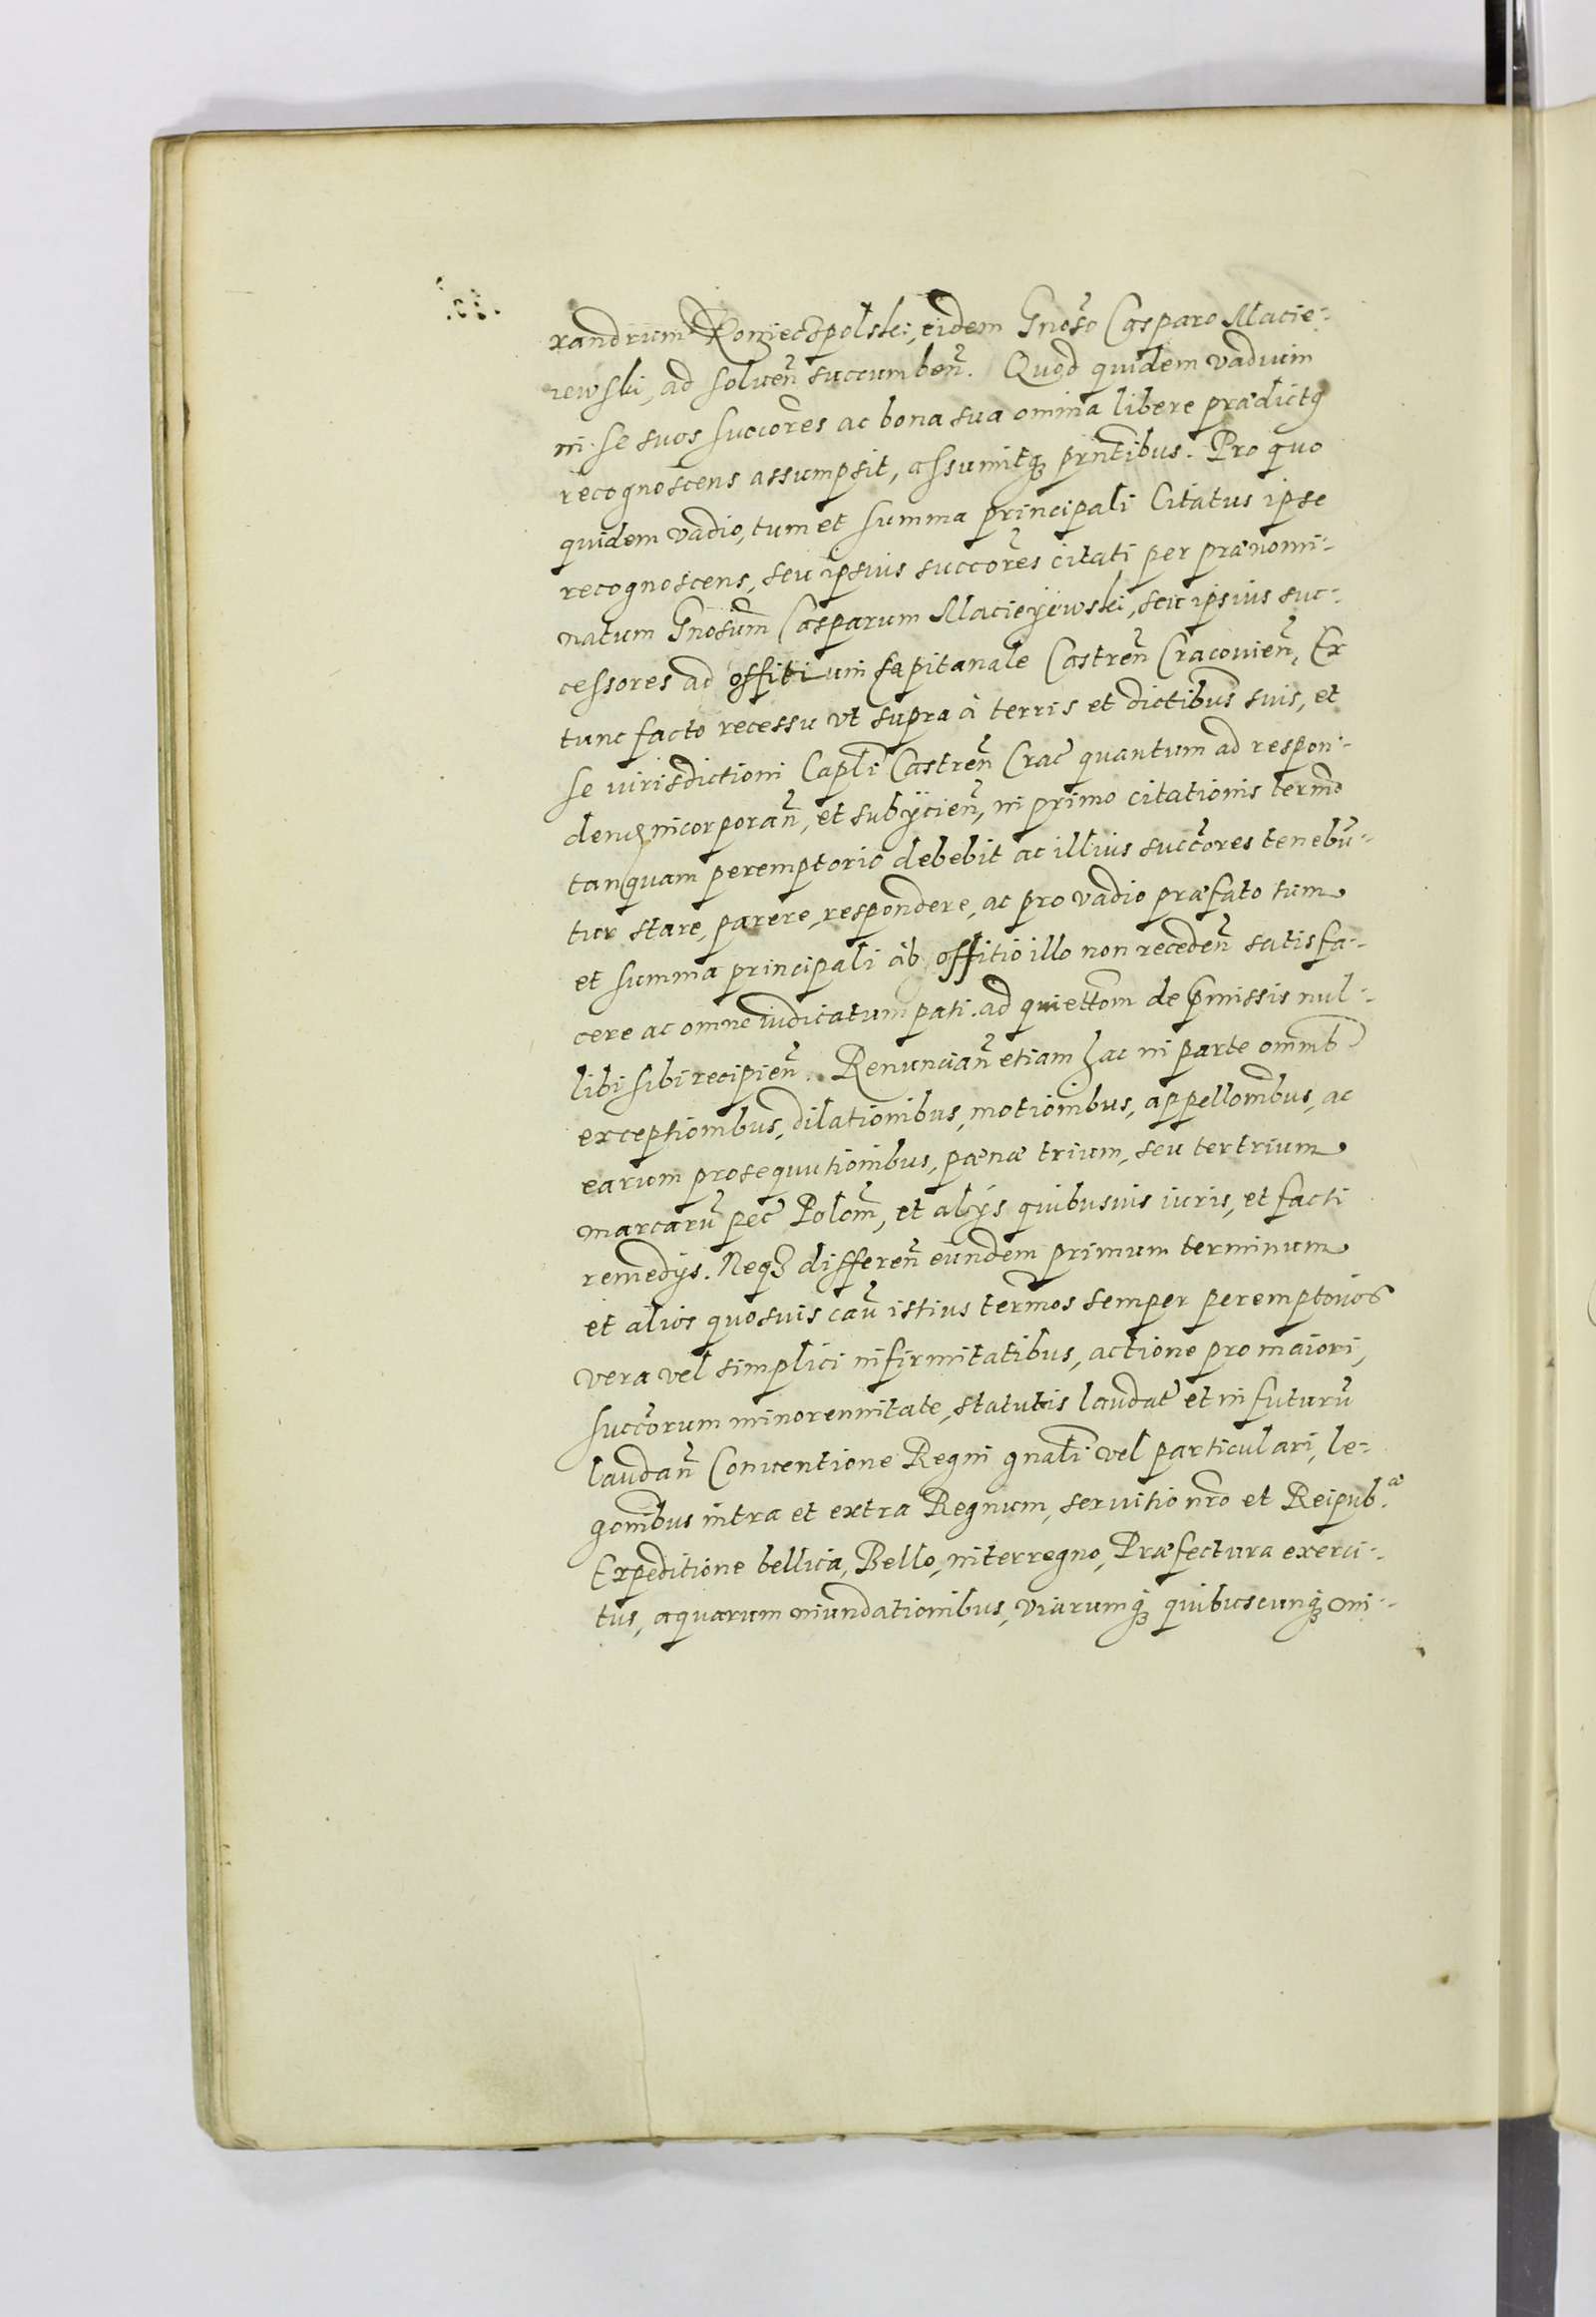 xandrum Konieczpolski, eidem Gnoso Casparo Macie-
iewski, ad soluen̄ succumben̄. Quod quidem vadium
in se suos succores ac bona sua omnia libere prædictꝯ
recognoscens assumpsit, assumitqꝫ pn̄tibus. Pro quo
quidem vadio, tum et summa principali Citatus ipse
recognoscens, seu ipsius succores citati per prænomi-
natum Gnosum̄ Casparum Macieyewski, seu ipsius suc-
cessores ad offitium Capitanale Castren̄ Cracouien̄, Ex
tunc facto recessu vt supra à terris et dictibus suis, et
se iurisdictioni Capl̄i Castren̄ Crac̄ quantum ad respon-
den̄ incorporan̄, et subijcien̄, in primo citationis termo
tanquam peremptorio debebit ac illius succores tenebū-
tur stare, parere, respondere, ac pro vadio præfato tum
et summa principali ab offitio illo non receden̄ satisfa-
cere ac omne iudicatum pati. ad quiettom de p̄missis nul-
libi sibi recipien̄. Renuncian̄ etiam hac in parte omnib
exceptionibus, dilationibus, motionibus, appellombus, ac
earum prosequutionibus, pænæ trium, seu ter trium
marcarū pec̄ Polom̄, et alijs quibusuis iuris, et facti
remedijs. Neqꝫ differen̄ eundem primum terminum
et alios quosuis cau̅ istius termos semper peremptorios
vera vel simplici infirmitatibus, actione pro maiori,
succorum minorennitate, statutis laudat̄ et in futurū
laudan̄ Conuentione Regni gn̄ali vel particulari, le-
gonibus intra et extra Regnum, seruitio nr̄o et Reipub.æ
Expeditione bellica, Bello, interregno, Præfectura exerci-
tus, aquarum inundationibus, viarumqꝫ quibuscunqꝫ in-